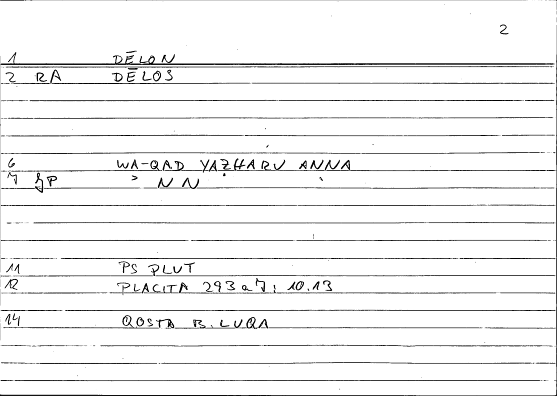 2
1 DĒLON
2 RA DĒLOS
6 WA-QAD YAẒHARU ANNA
7 NN
11 PS PLUT
12 PLACITA 293 a 7; 10.13
14 QOSTA B. LUQA